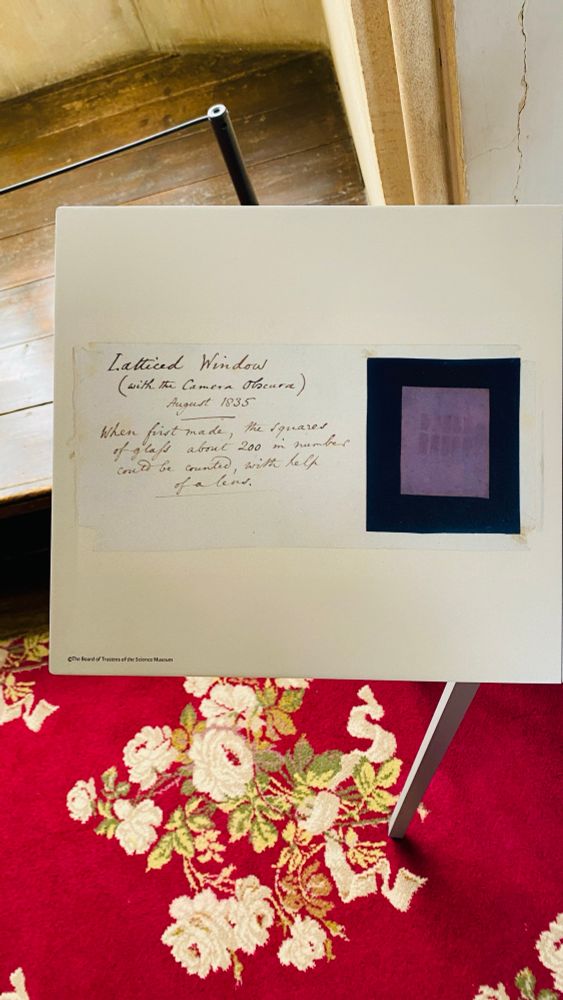 Latticed Window
(with the Camera Obscura)
August 1835
When first made, the squares
of glass about 200 in number
could be counted, with help
of a lens.
©The Board of Trustees of the Science Museum